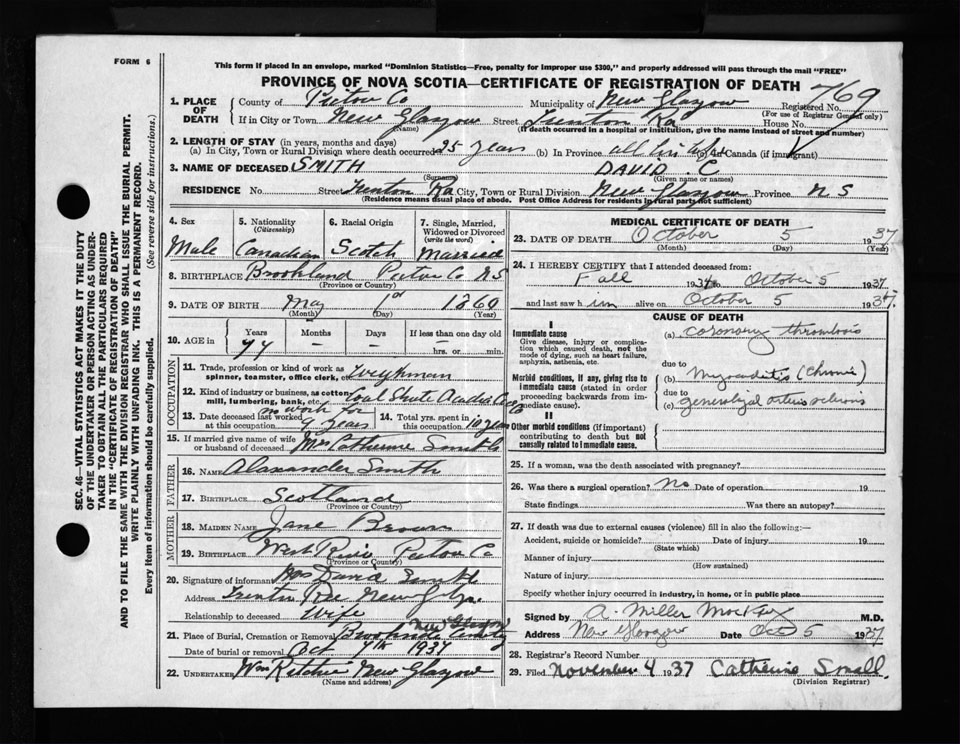 FORM 6
This form if placed in an envelope, marked "Dominion Statistics—Free, penalty for improper use $300," and properly addressed will pass through the mail "FREE"
PROVINCE OF NOVA SCOTIA—CERTIFICATE OF REGISTRATION OF DEATH
769
Registered No.
(For use of Registrar General only)
1. PLACE OF DEATH
County of Pictou Co Municipality of New Glasgow
If in City or Town New Glasgow Street Trenton Rd House No.
(Name) (If death occurred in a hospital or institution, give the name instead of street and number)
2. LENGTH OF STAY (in years, months and days)
(a) In City, Town or Rural Division where death occurred 25 years (b) In Province all his life (c) In Canada (if immigrant)
3. NAME OF DECEASED SMITH DAVID. C
(Surname) (Given name or names)
RESIDENCE No. Street Trenton Rd City, Town or Rural Division New Glasgow Province N S
(Residence means usual place of abode. Post Office Address for residents in rural parts not sufficient)
4. Sex
Male
5. Nationality
(Citizenship)
Canadian
6. Racial Origin
Scotch
7. Single, Married, Widowed or Divorced
(write the word)
Married
8. BIRTHPLACE Brookland Pictou Co N S
(Province or County)
9. DATE OF BIRTH May 1st 1860
(Month) (Day) (Year)
10. AGE in
Years Months Days If less than one day old
77 – – hrs. or min.
OCCUPATION
11. Trade, profession or kind of work as spinner, teamster, office clerk, etc.
12. Kind of industry or business, as cotton mill, lumbering, bank, etc. Coal
13. Date deceased last worked at this occupation no work for years
14. Total yrs. spent in this occupation 10 years
15. If married give name of wife or husband of deceased Mrs Catherine Smith
FATHER
16. NAME Alaxander Smith
17. BIRTHPLACE Scotland
(Province or County)
MOTHER
18. MAIDEN NAME Jane Brown
19. BIRTHPLACE West River Pictou Co
(Province or County)
20. Signature of informant Mrs David Smith
Address Trenton New
Relationship to deceased Wife
21. Place of Burial, Cremation or Removal New Glasgow
Date of burial or removal Oct 7th 1937
22. UNDERTAKER Wm Ritchie New Glasgow
(Name and address)
MEDICAL CERTIFICATE OF DEATH
23. DATE OF DEATH October 5 1937
(Month) (Day) (Year)
24. I HEREBY CERTIFY that I attended deceased from:
Fall 193 to October 5 1937
and last saw him alive on October 5 1937.
CAUSE OF DEATH
I
Immediate cause
Give disease, injury or complication which caused death, not the mode of dying, such as heart failure, asphyxia, asthenia, etc.
(a) coronary thrombosis
due to
Morbid conditions, if any, giving rise to immediate cause (stated in order proceeding backwards from immediate cause).
(b) Myocarditis (chronic)
due to
(c) generalized arterio sclerosis
II
Other morbid conditions (if important) contributing to death but not causally related to immediate cause.
25. If a woman, was the death associated with pregnancy?
26. Was there a surgical operation? No Date of operation 19
State findings Was there an autopsy?
27. If death was due to external causes (violence) fill in also the following:—
Accident, suicide or homicide? Date of injury 19
(State which)
Manner of injury
(How sustained)
Nature of injury
Specify whether injury occurred in industry, in home, or in public place
Signed by A. Miller M.D.
Address New Glasgow Date Oct 5 1937
28. Registrar's Record Number
29. Filed November 4 1937 Catherine Small
(Division Registrar)
SEC. 46—VITAL STATISTICS ACT MAKES IT THE DUTY
OF THE UNDERTAKER OR PERSON ACTING AS UNDER-
TAKER TO OBTAIN ALL THE PARTICULARS REQUIRED
IN THE "CERTIFICATE OF REGISTRATION OF DEATH"
AND TO FILE THE SAME WITH THE DIVISION REGISTRAR WHO SHALL ISSUE THE BURIAL PERMIT.
WRITE PLAINLY WITH UNFADING INK. THIS IS A PERMANENT RECORD.
Every item of information should be carefully supplied. (See reverse side for instructions.)